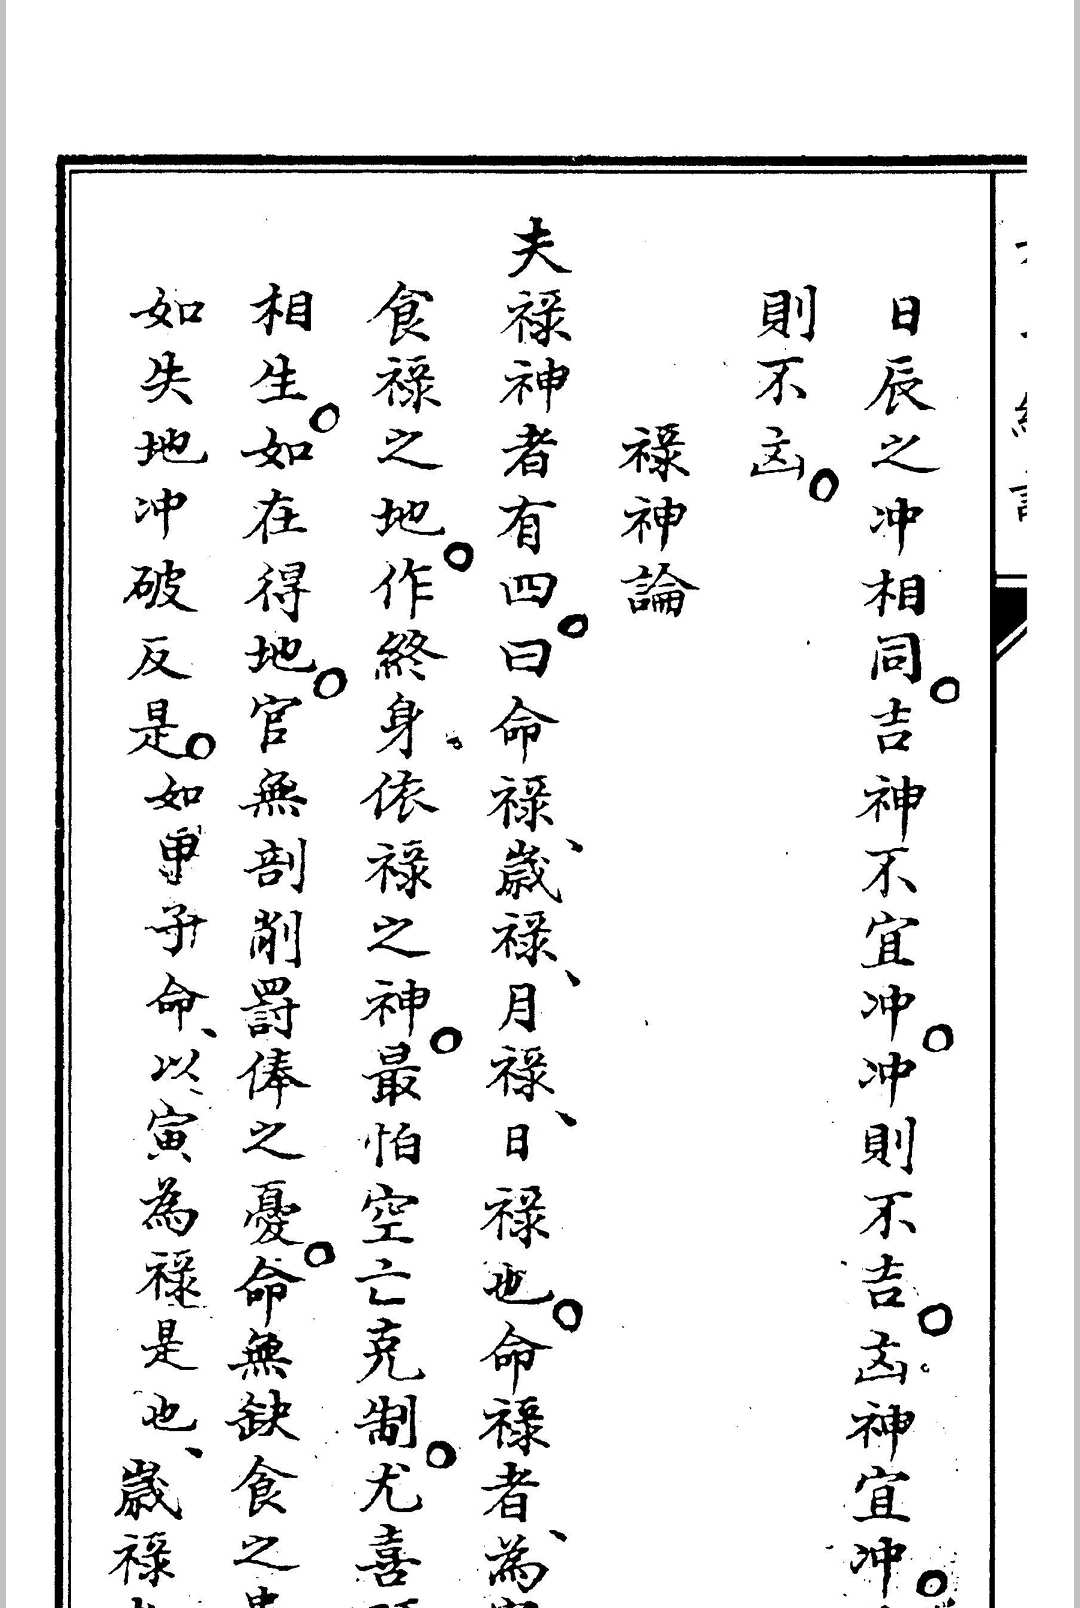 日辰之冲相同。吉神不宜冲。冲則不吉。凶神宜冲。
則不凶。
祿神論
夫祿神者有四。曰命祿、歲祿、月祿、日祿也。命祿者、為
食祿之地。作終身依祿之神。最怕空亡克制。尤喜
相生。如在得地。官無剖削罰俸之憂。命無缺食之
如失地冲破反是。如甲子命、以寅為祿是也、歲祿